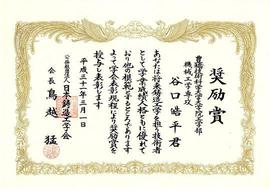 奨励賞
豊橋技術科学大学大学院工学部
機械工学専攻
谷口皓平君
あなたは将来鋳造工学を担う技術者
として学業成績人格ともに優れて
おり他の模範とするところであります
よって学会表彰規程により奨励賞を
授与し表彰します
平成三十一年三月一日
公益社団法人日本鋳造工学会
会長鳥越猛